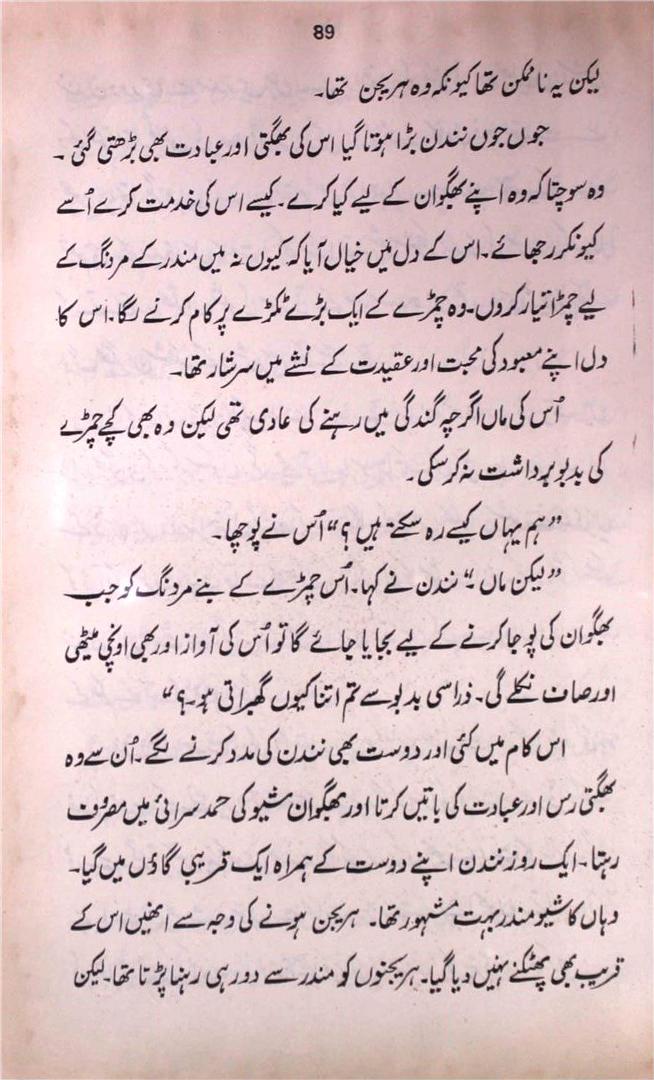 89
لیکن یہ ناممکن تھا کیونکہ وہ ہریجن تھا۔
جوں جوں نندن بڑا ہوتا گیا اس کی بھگتی اور عبادت بھی بڑھتی گئی۔
وہ سوچتا کہ وہ اپنے بھگوان کے لیے کیا کرے۔ کیسے اس کی خدمت کرے اُسے
کیونکر رجھائے۔ اس کے دل میں خیال آیا کہ کیوں نہ میں مندر کے مردنگ کے
لیے چمڑا تیار کروں۔ وہ چمڑے کے ایک بڑے ٹکڑے پر کام کرنے لگا۔ اس کا
دل اپنے معبود کی محبت اور عقیدت کے نشے میں سرشار تھا۔
اُس کی ماں اگرچہ گندگی میں رہنے کی عادی تھی لیکن وہ بھی کچے چمڑے
کی بدبو برداشت نہ کر سکی۔
”ہم یہاں کیسے رہ سکتے ہیں؟“ اُس نے پوچھا۔
”لیکن ماں۔“ نندن نے کہا۔ اُس چمڑے کے بنے مردنگ کو جب
بھگوان کی پوجا کرنے کے لیے بجایا جائے گا تو اُس کی آواز اور بھی اونچی میٹھی
اور صاف نکلے گی۔ ذرا سی بدبو سے تم اتنا کیوں گھبراتی ہو۔؟“
اس کام میں کئی اور دوست بھی نندن کی مدد کرنے لگے۔ اُن سے وہ
بھگتی رس اور عبادت کی باتیں کرتا اور بھگوان شیو کی حمد سرائی میں مصروف
رہتا۔ ایک روز نندن اپنے دوست کے ہمراہ ایک قریبی گاؤں میں گیا۔
وہاں کا شیو مندر بہت مشہور تھا۔ ہریجن ہونے کی وجہ سے انھیں اس کے
قریب بھی پھٹکنے نہیں دیا گیا۔ ہریجنوں کو مندر سے دور ہی رہنا پڑتا تھا۔ لیکن